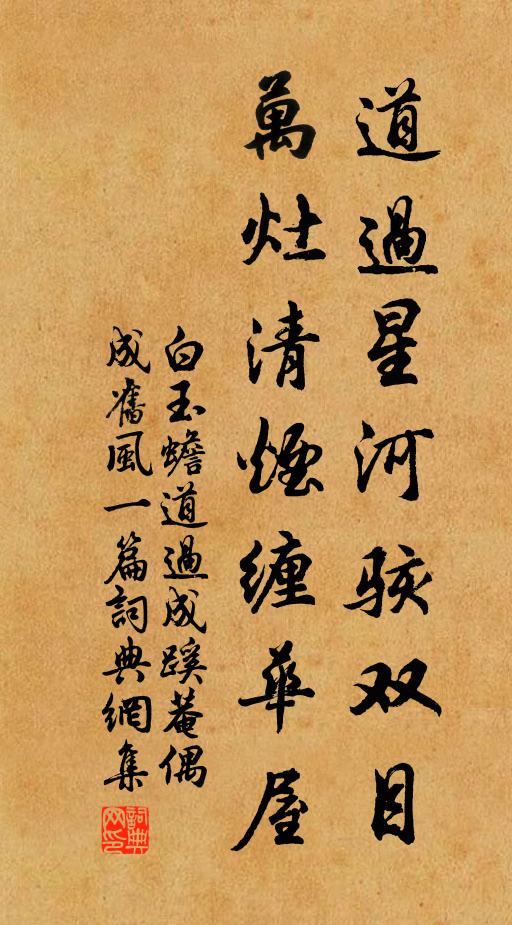 道過星河駭双目
萬灶清煙纏華屋
白玉蟾道過成蹊菴偶
成舊風一篇詞典網集
詞典网印